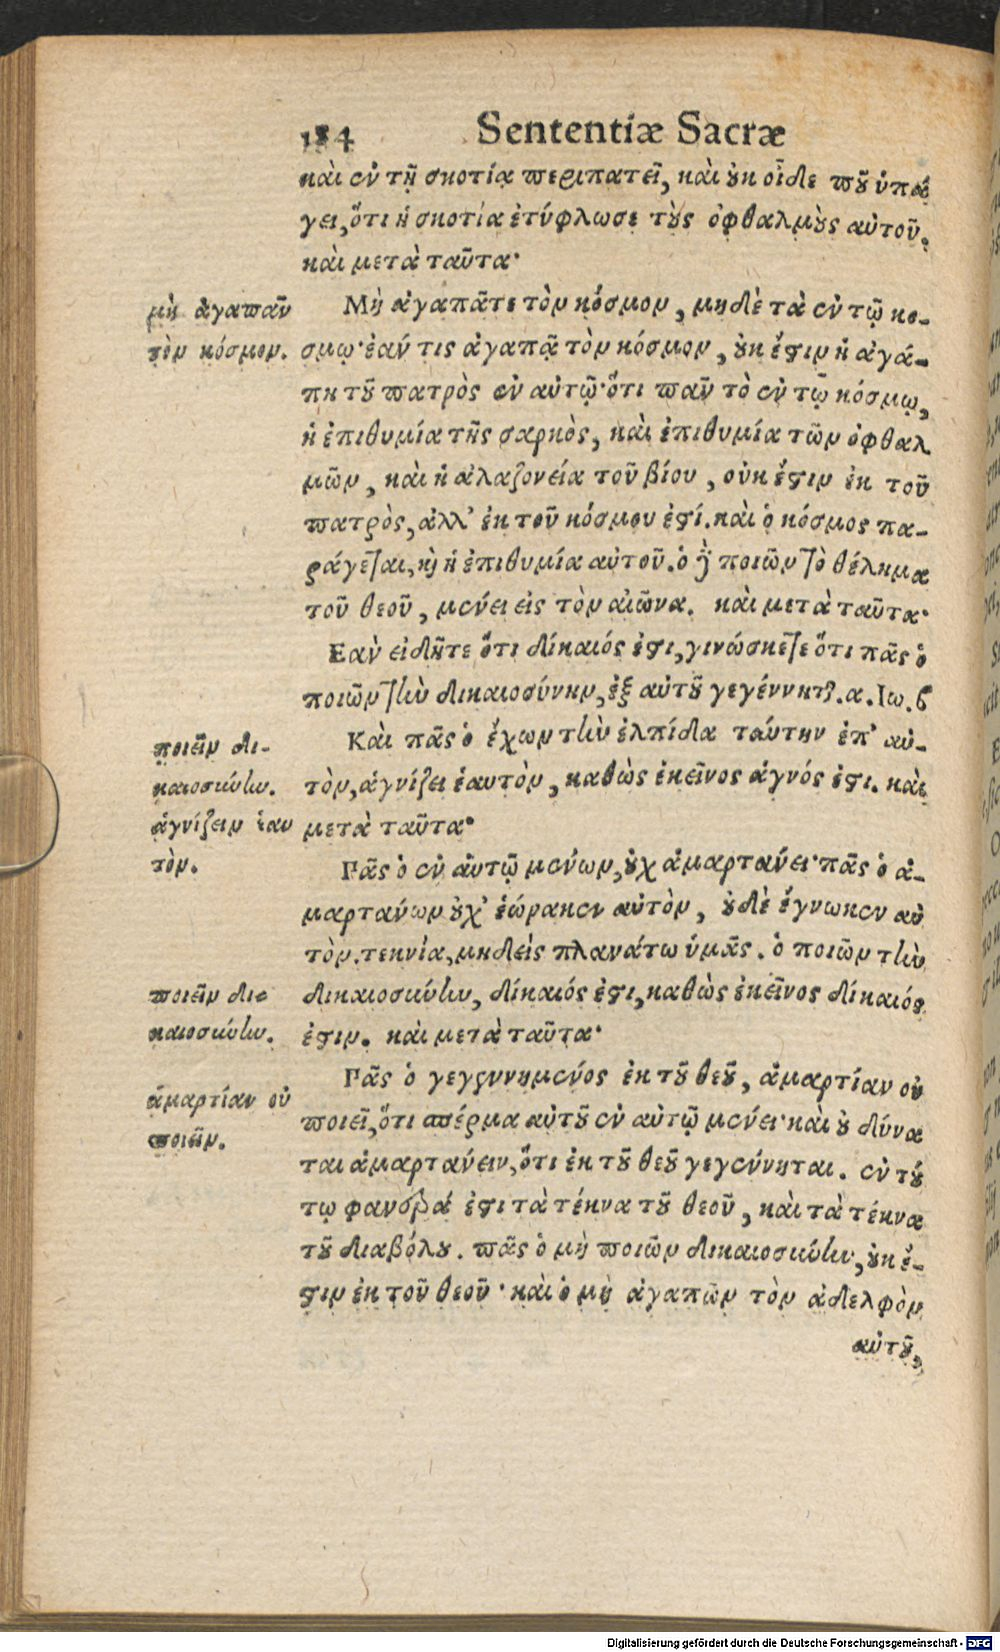 184 Sententiæ Sacræ
καὶ ἐν τῇ σκοτίᾳ περιπατεῖ, καὶ οὐκ οἶδε ποῦ ὑπά
γει, ὅτι ἡ σκοτία ἐτύφλωσε τοὺς ὀφθαλμοὺς αὐτοῦ.
καὶ μετὰ ταῦτα·
μὴ ἀγαπᾶν
τὸν κόσμον.
Μὴ ἀγαπᾶτε τὸν κόσμον, μηδὲ τὰ ἐν τῷ κο-
σμῳ· ἐάν τις ἀγαπᾷ τὸν κόσμον, οὐκ ἔστιν ἡ ἀγά-
πη τοῦ πατρὸς ἐν αὐτῷ· ὅτι πᾶν τὸ ἐν τῷ κόσμῳ,
ἡ ἐπιθυμία τῆς σαρκὸς, καὶ ἐπιθυμία τῶν ὀφθαλ
μῶν, καὶ ἡ ἀλαζονεία τοῦ βίου, οὐκ ἔστιν ἐκ τοῦ
πατρὸς, ἀλλ' ἐκ τοῦ κόσμου ἐστί. καὶ ὁ κόσμος πα-
ράγεται, καὶ ἡ ἐπιθυμία αὐτοῦ. ὁ δὲ ποιῶν τὸ θέλημα
τοῦ θεοῦ, μένει εἰς τὸν αἰῶνα. καὶ μετὰ ταῦτα·
Εαν εἰδῆτε ὅτι δίκαιός ἐστι, γινώσκετε ὅτι πᾶς ὁ
ποιῶν τὴν δικαιοσύνην, ἐξ αὐτοῦ γεγέννηται. α. Ιω. β
ποιεῖν δι-
καιοσύνην.
ἁγνίζειν ἑαυ
τὸν.
Καὶ πᾶς ὁ ἔχων τὴν ἐλπίδα ταύτην ἐπ' αὐ-
τὸν, ἁγνίζει ἑαυτὸν, καθὼς ἐκεῖνος ἁγνός ἐστι. καὶ
μετὰ ταῦτα·
Πᾶς ὁ ἐν αὐτῷ μένων, οὐχ ἁμαρτάνει· πᾶς ὁ ἁ-
μαρτάνων οὐχ' ἑώρακεν αὐτὸν, οὐδὲ ἔγνωκεν αὐ
τὸν. τεκνία, μηδεὶς πλανάτω ὑμᾶς. ὁ ποιῶν τὴν
ποιεῖν δι-
καιοσύνην.
δικαιοσύνην, δίκαιός ἐστι, καθὼς ἐκεῖνος δίκαιός
ἐστιν. καὶ μετὰ ταῦτα·
ἁμαρτίαν οὐ
ποιεῖν.
Πᾶς ὁ γεγεννημένος ἐκ τοῦ θεοῦ, ἁμαρτίαν οὐ
ποιεῖ, ὅτι σπέρμα αὐτοῦ ἐν αὐτῷ μένει· καὶ οὐ δύνα
ται ἁμαρτάνειν, ὅτι ἐκ τοῦ θεοῦ γεγέννηται. ἐν τού
τῳ φανερά ἐστι τὰ τέκνα τοῦ θεοῦ, καὶ τὰ τέκνα
τοῦ διαβόλου. πᾶς ὁ μὴ ποιῶν δικαιοσύνην, οὐκ ἔ-
στιν ἐκ τοῦ θεοῦ· καὶ ὁ μὴ ἀγαπῶν τὸν ἀδελφὸν
αὐτοῦ,
Digitalisierung gefördert durch die Deutsche Forschungsgemeinschaft - DFG